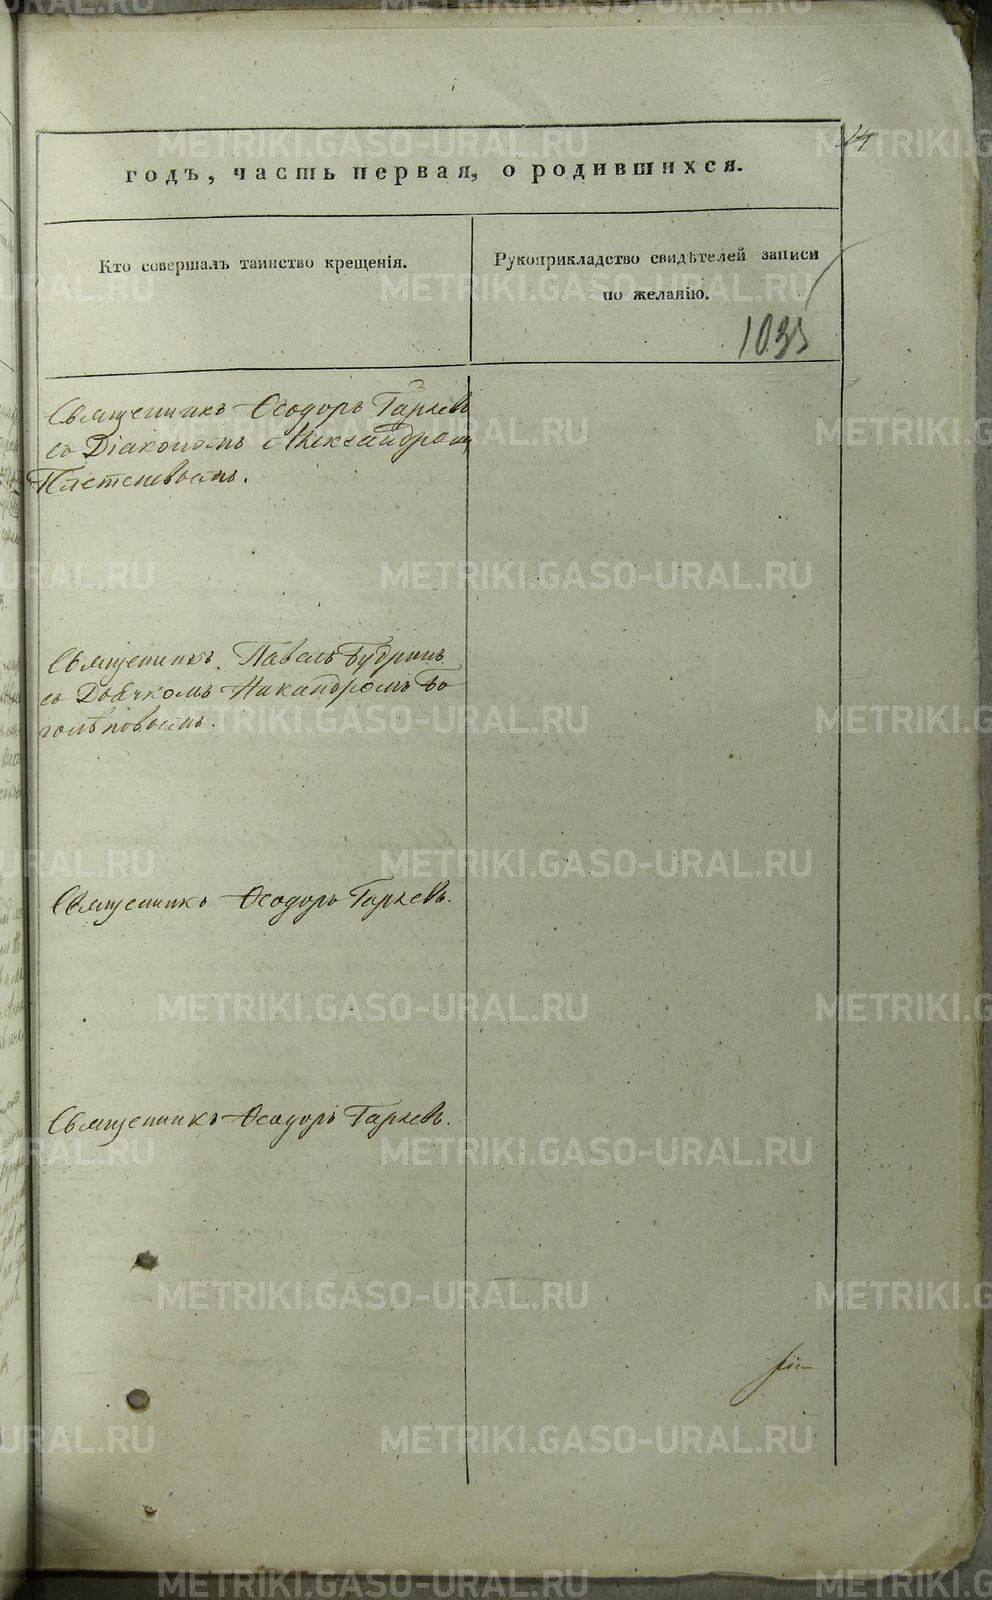 14
годъ, часть первая, о родившихся.
Кто совершалъ таинство крещенія.
Рукоприкладство свидѣтелей записи
по желанію.
1033
Священникъ Ѳеодоръ Гаряевъ
со Діакономъ Александромъ
Плетеневымъ.
Священникъ Павелъ Будринъ
со Дьячкомъ Никандромъ Бо
голѣповымъ.
Священникъ Ѳеодоръ Гаряевъ.
Священникъ Ѳеодоръ Гаряевъ.
METRIKI.GASO-URAL.RU